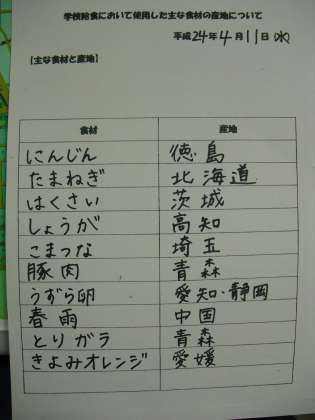 学校給食において使用した主な食材の産地について
平成24年4月11日(水)
【主な食材と産地】
食材 産地
にんじん 徳島
たまねぎ 北海道
はくさい 茨城
しょうが 高知
こまつな 埼玉
豚肉 青森
うずら卵 愛知・静岡
春雨 中国
とりガラ 青森
きよみオレンジ 愛媛